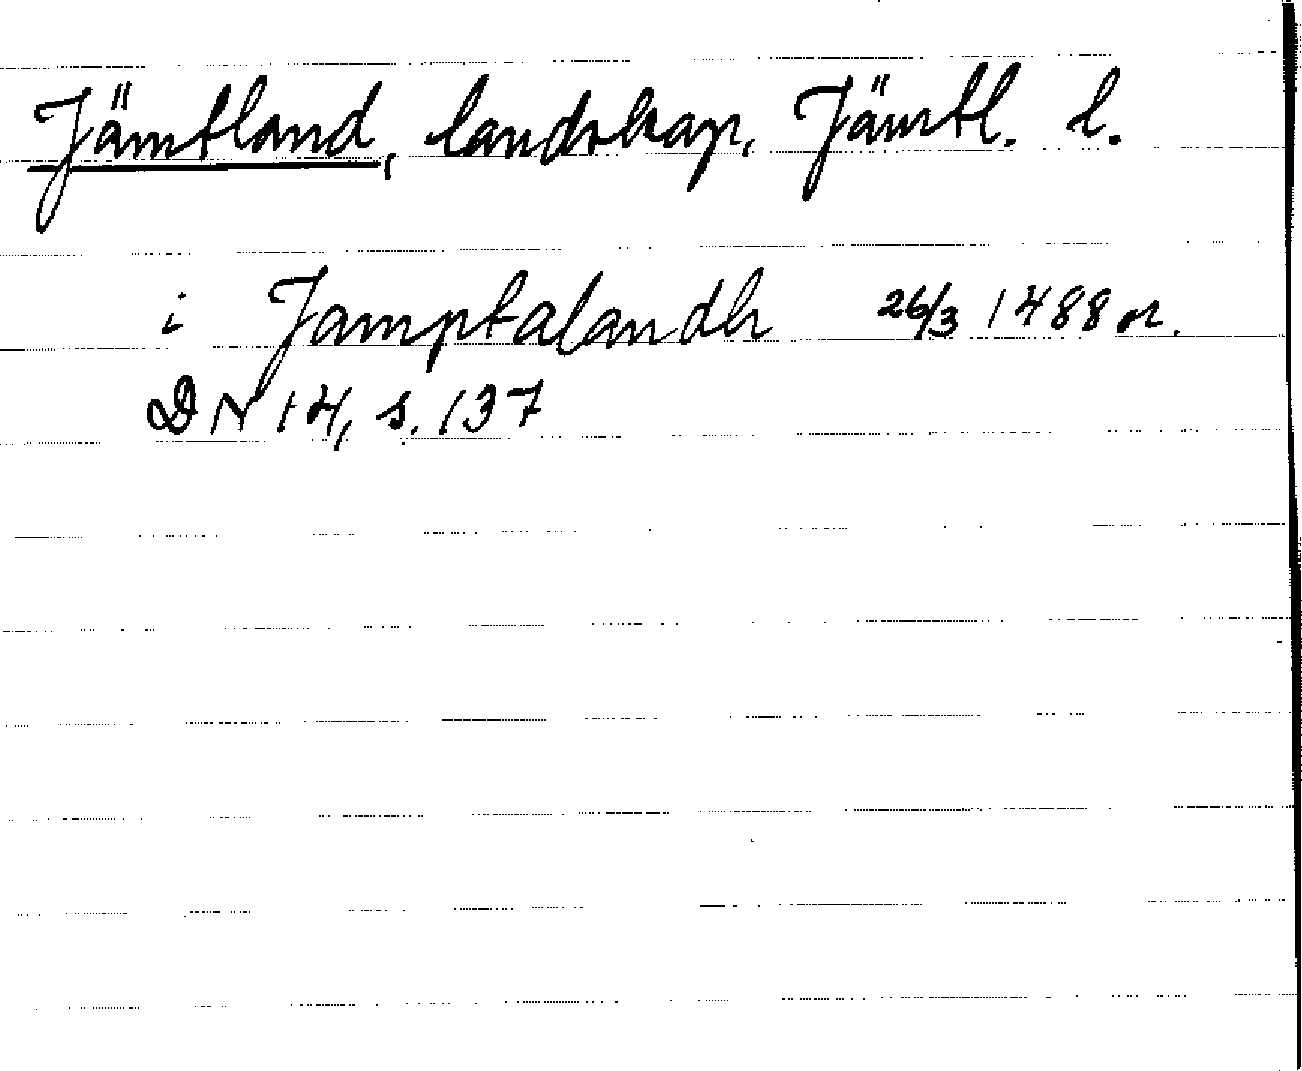 Jämtland, landskap, Jämtl. l.
i Jamptalandh 26/3 1488 or.
DN 14, s. 137